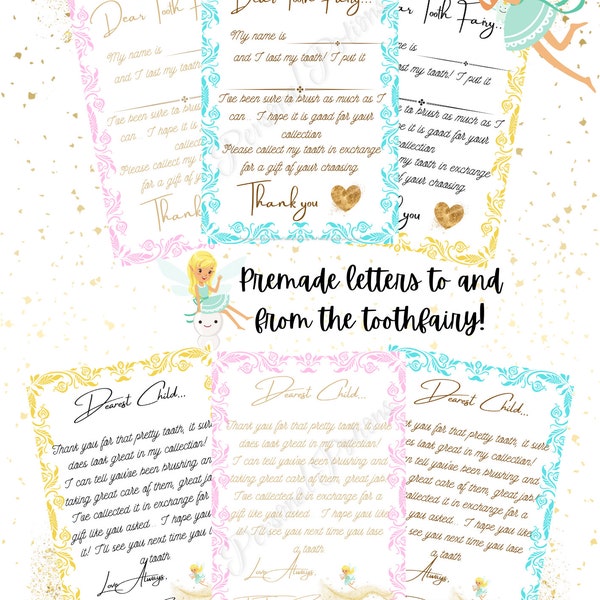 Dear Tooth Fairy...
My name is
and I lost my tooth! I put it
I've been sure to brush as much
can. I hope it is good for
collection
Please collect my tooth in
for a gift of your
Thank
Dear Tooth Fairy...
My name is
and I lost my tooth! I put it
I've been sure to brush as much as I
can. I hope it is good for your
collection
Please collect my tooth in exchange
for a gift of your choosing
Thank you
Dear Tooth Fairy...
and I lost my tooth! I put it
to brush as much as I
it is good for your
collection
my tooth in exchange
of your choosing
you
Premade letters to and
from the toothfairy!
Dearest Child...
Thank you for that pretty tooth, it sure
does look great in my collection!
I can tell you've been brushing and
taking great care of them, great job
I've collected it in exchange for a
gift like you asked. I hope you
it! I'll see you next time you
a tooth
Love Always,
Dearest Child...
Thank you for that pretty tooth, it sure
does look great in my collection!
I can tell you've been brushing and
taking great care of them, great job
I've collected it in exchange for a
gift like you asked. I hope you like
it! I'll see you next time you lose
a tooth
Love Always,
Dearest Child...
Thank you for that pretty tooth, it sure
does look great in my collection!
I can tell you've been brushing and
great care of them, great job
collected it in exchange for a
like you asked. I hope you like
I'll see you next time you lose
a tooth
Love Always,